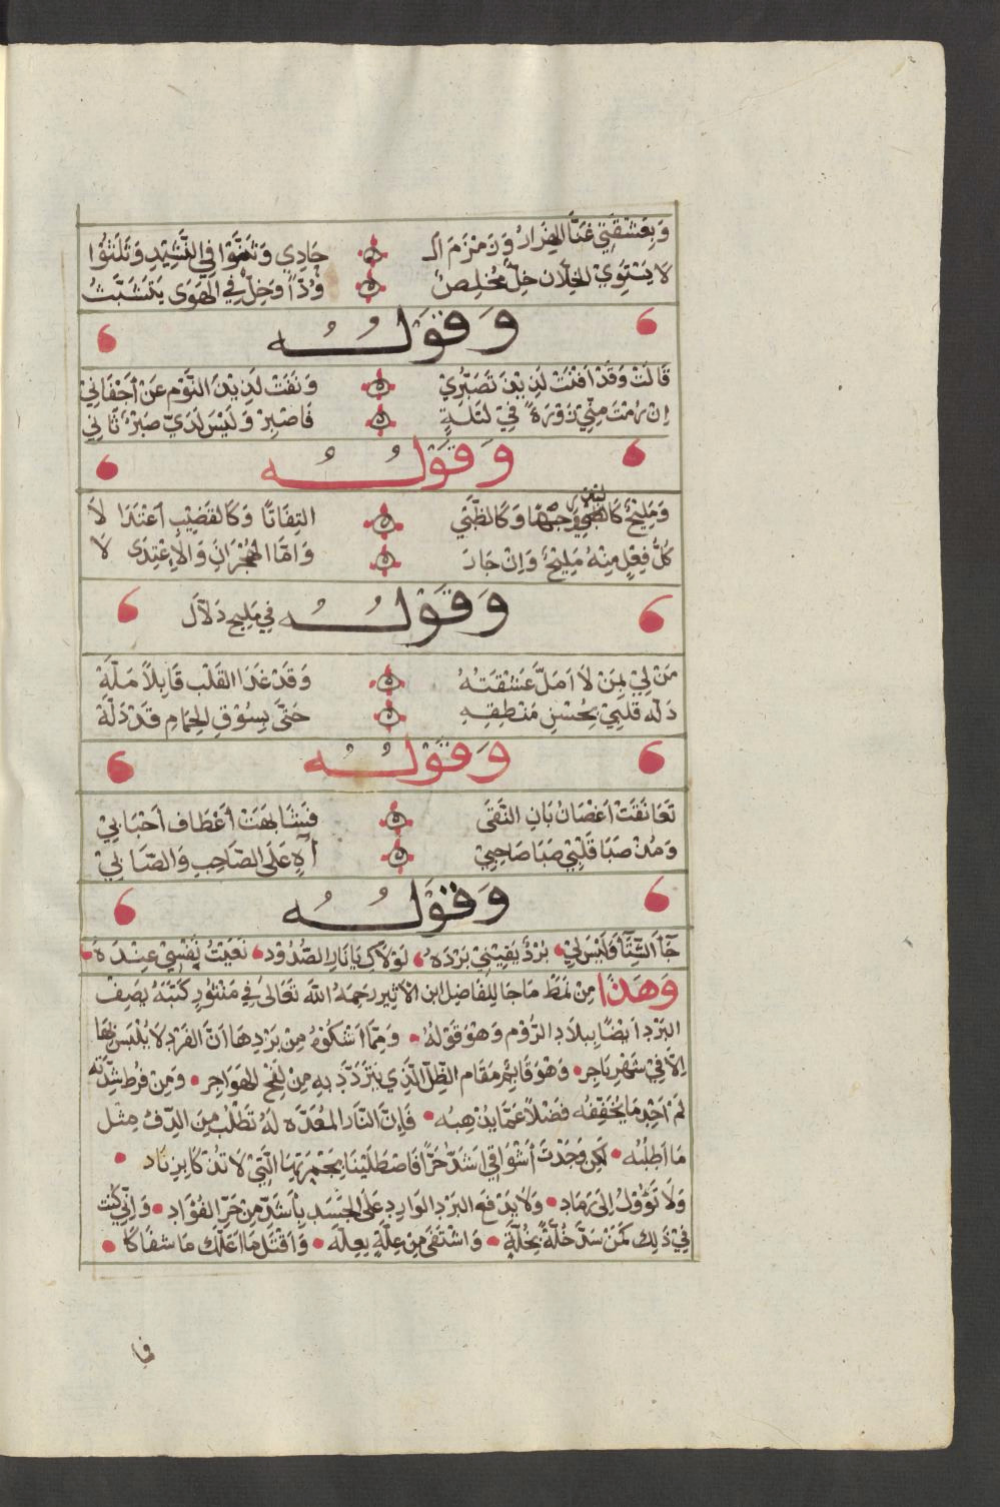 وَبِعَشْقَتِي غَنَّا الهَزَارُ وَزَمْزَمَ الْـ حَادِي وَثَنَّوْا فِي النَّشِيْدِ وَثَلَّثُوْا
لَا يَسْتَوِيْ الخِلَّان خِلٌّ مُخْلِصٌ وُدّاً وَخِلٌّ فِي الهَوَى يَتَشَبَّثُ
وَقَوْلُهُ
قَالَتْ وَقَدْ اَفْنَتْ لَذِيْذَ تَصَبُّرِيْ وَنَفَتْ لَذِيْذَ النَّوْمِ عَنْ أَجْفَانِيْ
اِنْ رُمْتَ مِنِّيْ زَوْرَةً فِيْ لَيْلَةٍ فَاصْبِرْ وَلَيْسَ لَدَيَّ صَبْرٌ ثَانِي
وَقَوْلُهُ
وَمَلِيْحٌ كَالظَّبْيِ وَكَالظَّبْيِ التِفَاتًا وَكَالقَضِيْبِ اَعْتَدَا لَا
كُلُّ فِعْلٍ مِنْهُ مَلِيْحٌ وَاِنْ جَارَ وَامَّا الهُجْرَانَ وَالاِعْتِدَى لَا
وَقَوْلُهُ فِي مَلِيحٍ دَلَّال
مَنْ لِيْ بِمَنْ لَا اَمَلَّ عَشْقَتَهُ وَقَدْ غَدَا القَلْب قَابِلاً مَلَّهْ
دَلَّه قَلْبِيْ بِحُسْنِ مَنْطِقِهِ حَتَّى بِسُوْقِ الحِمَامِ قَدْ دَلَّهْ
وَقَوْلُهُ
تَعَانَقَتْ اَغْصَانُ بَانِ النَّقَى فَشَابَهَتْ أَعْطَاف اَحْبَابِيْ
وَمُذْ صَبَا قَلْبِيْ صَبَا صَاحِبِيْ آهٍ عَلَى الصَّاحِبِ وَالصَّابِيْ
وَقَوْلُهُ
جَآ الشِّتَآ وَلَيْسَ لِيْ بُرْدٌ يَقِيْنِيْ بَرْدَهُ لَوْلَاكِ يَا نَارَ الصُّدُوْد نَعَيْتُ نَفْسِيْ عِنْدَهُ
وَهَذَا مِنْ نَمَطَ مَا جَا لِلفَاضِلِ ابن الاَثِير رَحِمَهُ اللّٰه تَعَالَى فِي مَنْثُوْرٍ كَتَبَهُ يَصِفُ
البَرْدِ اَيْضًا بِبِلَادِ الرُّوْم وَهْوَ قَوْلهُ وَمِمَّا اَشْكُوْهُ مِنْ بَرْدِهَا اَنَّ الفَرْو لَا يُلْبَسُ بِهَا
اِلاَّ فِيْ شَهْرِ نَاجِر وَهْوَ قَائِمٌ مَقَام الظِّلِّ الَّذِي يُتَبَرَّدُ بِهِ مِنْ لَفْحِ الهَوَاجِر وَمِنْ فَرْطِ شِدَّتِهِ
لَمْ اَجِدْ مَا يُخَفِّفُه فَضْلاً عَمَّا يُذْهِبُه فَاِنَّ النَّارَ المُعَدَّه لَهُ تَطْلُب مِنَ الدِّفْ مِثْل
مَا اَطْلُبُه لَكِن وَجَدْتَ أَشْوَاقِي اَشَدّ حَرّاً فَاصْطَلَيْنَا بِجَمْرَتِهَا الَّتِيْ لَا تُذْكَا بِزِنَاد
وَلَا تَؤُوْلُ اِلَى رَمَادِ وَلَا يُدْفَع البَرْد الوَارِدِ عَلَى الجَسَد بِاَشَدّ مِنْ حَرِّ الفُؤَاد وَاِنِّي كُنْت
فِيْ ذَلِك كَمَنْ سَدّ خُلَّةً بِخُلَّةٍ وَاشْتَفَى مِنْ عِلَّةٍ بِعِلَّه وَاَقْتَل مَا اَعَلّك مَا شَفَاكَا